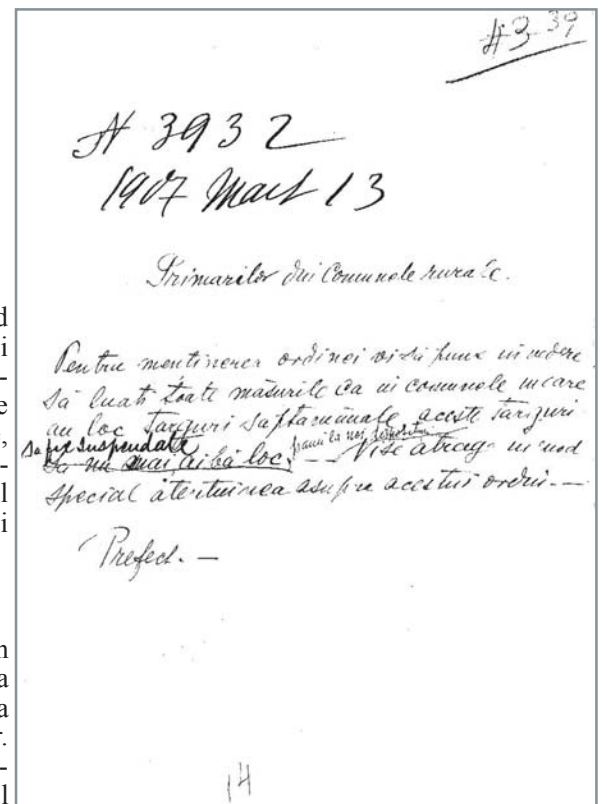 #3 39
N 3932
1907 Mart 13
Primarilor din Comunele rurale.
Pentru mentinerea ordinei vi se pune in vedere
sa luati toate masurile ca in comunele in care
au loc targuri saptamanale aceste targuri
sa fie suspendate pana la noi dispozitiuni
sa nu mai aiba loc. — Vi se atrage in mod
special atentiunea asupra acestui ordin. —
Prefect. —
14
d
i
-
e
,
-
l
i
n
a
a
.
-
l